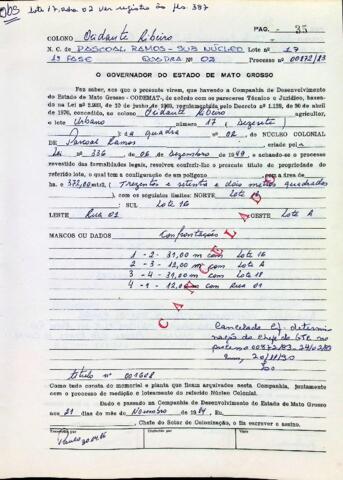 OBS lote 17, qda 02 Ver registro às fls. 387
PAG. - 35
COLONO Ocidante Ribeiro
N. C. de PASCOAL RAMOS - SUB NÚCLEO Lote nº 17
1ª FASE QUADRA Nº 02 Processo nº 00872/83
O GOVERNADOR DO ESTADO DE MATO GROSSO
Faz saber, aos que o presente virem, que havendo a Companhia de Desenvolvimento
do Estado de Mato Grosso - CODEMAT-, de acordo com os pareceres Técnico e Jurídico,
1976, concedido, ao colono Ocidante Ribeiro agricultor,
o lote Urbano número 17 (Dezesete)
na quadra nº 02, do NÚCLEO COLONIAL
DE Pascoal Ramos, criado pela
Lei nº 336 de 06 de Dezembro de 1949, e achando-se o processo
revestido das formalidades legais, resolveu conferir-lhe o presente título de propriedade do
referido lote, o qual tem a configuração de um polígono com a área de
372,00 mts, (Trezentos e setenta e dois metros quadrados
), com os seguintes limites: NORTE Lote 18
: SUL Lote 16
LESTE Rua 01 OESTE Lote A
MARCOS OU DADOS Confrontação
1 - 2 - 31,00 m com Lote 16
2 - 3 - 12,00 m com Lote A
3 - 4 - 31,00 m com Lote 18
4 - 1 - 12,00 m com Rua 01
CANCELADO
Cancelado Cf. determi
nação do Chefe do
processo 00872/83. 24/02/83
20/11/90
título nº 001608
Como tudo consta do memorial e planta que ficam arquivados nesta Companhia, juntamente
com o processo de medição e loteamento do referido Núcleo Colonial.
Dado e passado na Companhia de Desenvolvimento do Estado de Mato Grosso
aos 21 dias do mês de Novembro de 1984, Eu,
, Chefe do Setor de Colonização, o fiz escrever e assino.